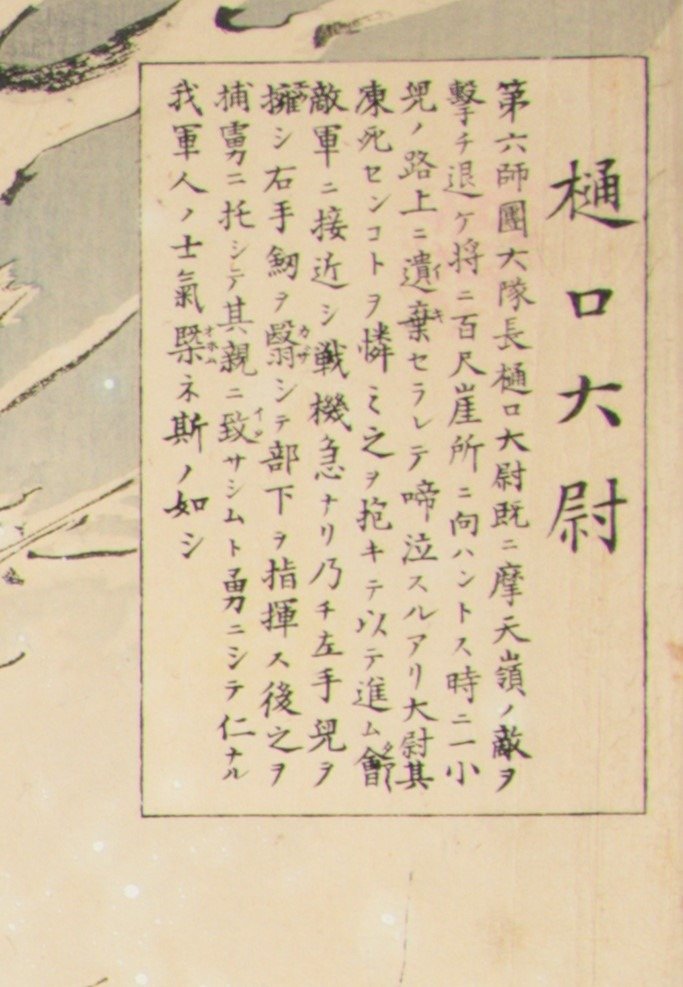 樋口大尉
第六師團大隊長樋口大尉既ニ摩天嶺ノ敵ヲ
撃チ退ケ将ニ百尺崖所ニ向ハントス時ニ一小
兒ノ路上ニ遺棄セラレテ啼泣スルアリ大尉其
凍死センコトヲ憐ミ之ヲ抱キテ以テ進ム會
敵軍ニ接近シ戦機急ナリ乃チ左手兒ヲ
擁シ右手劔ヲ翳シテ部下ヲ指揮ス後之ヲ
捕虜ニ托シテ其親ニ致サシムト勇ニシテ仁ナル
我軍人ノ士氣槩ネ斯ノ如シ